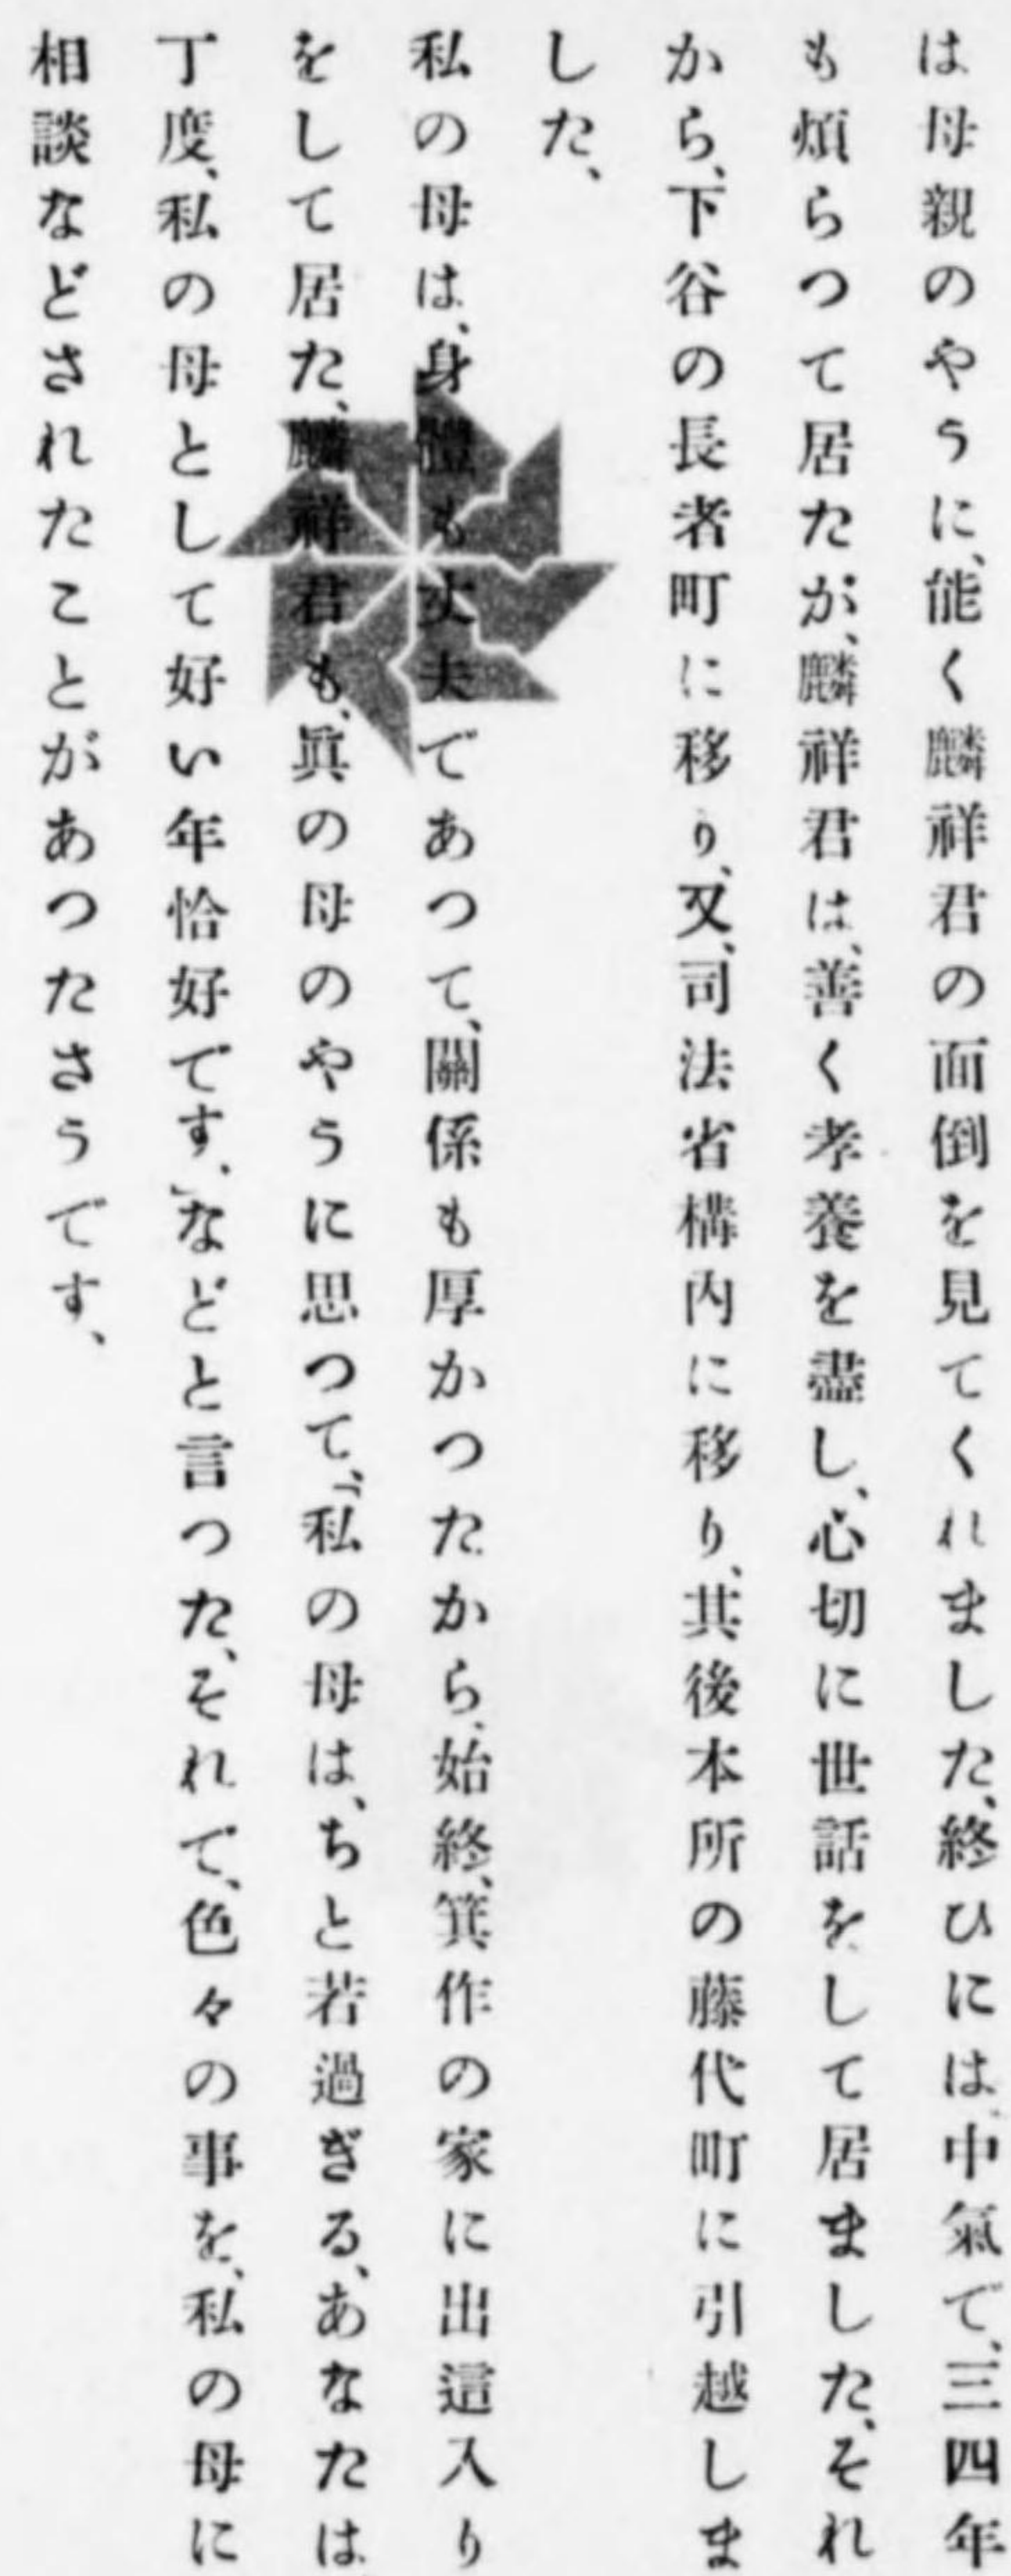 は母親のやうに、能く麟祥君の面倒を見てくれました、終ひには中氣で、三四年
も煩らつて居たが、麟祥君は、善く孝養を盡し、心切に世話をして居ました、それ
から、下谷の長者町に移り、又、司法省構内に移り、其後本所の藤代町に引越しま
した、
私の母は、身體も丈夫であつて、關係も厚かつたから、始終、箕作の家に出這入り
をして居た、麟祥君も、眞の母のやうに思つて、「私の母は、ちと若過ぎる、あなたは、
丁度、私の母として好い年恰好です、」などと言つた、それで、色々の事を、私の母に
相談などされたことがあつたさうです、